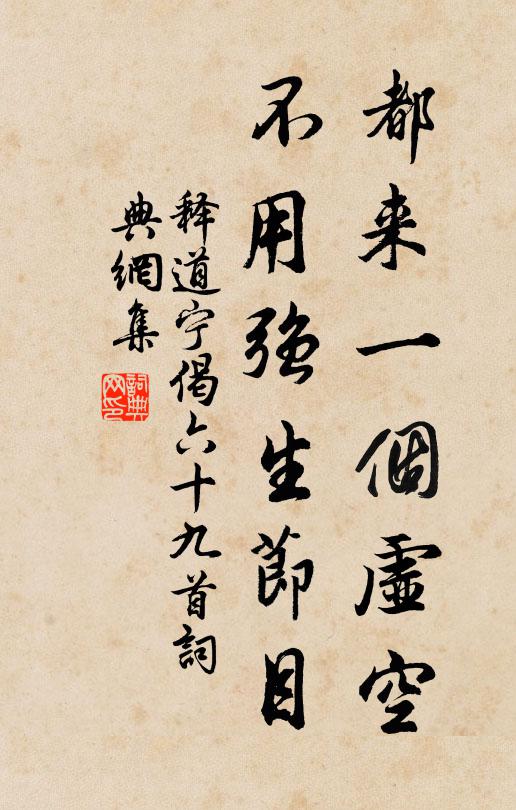 都来一個虛空
不用强生節目
释道宁偈六十九首詞
典網集
詞典
网印